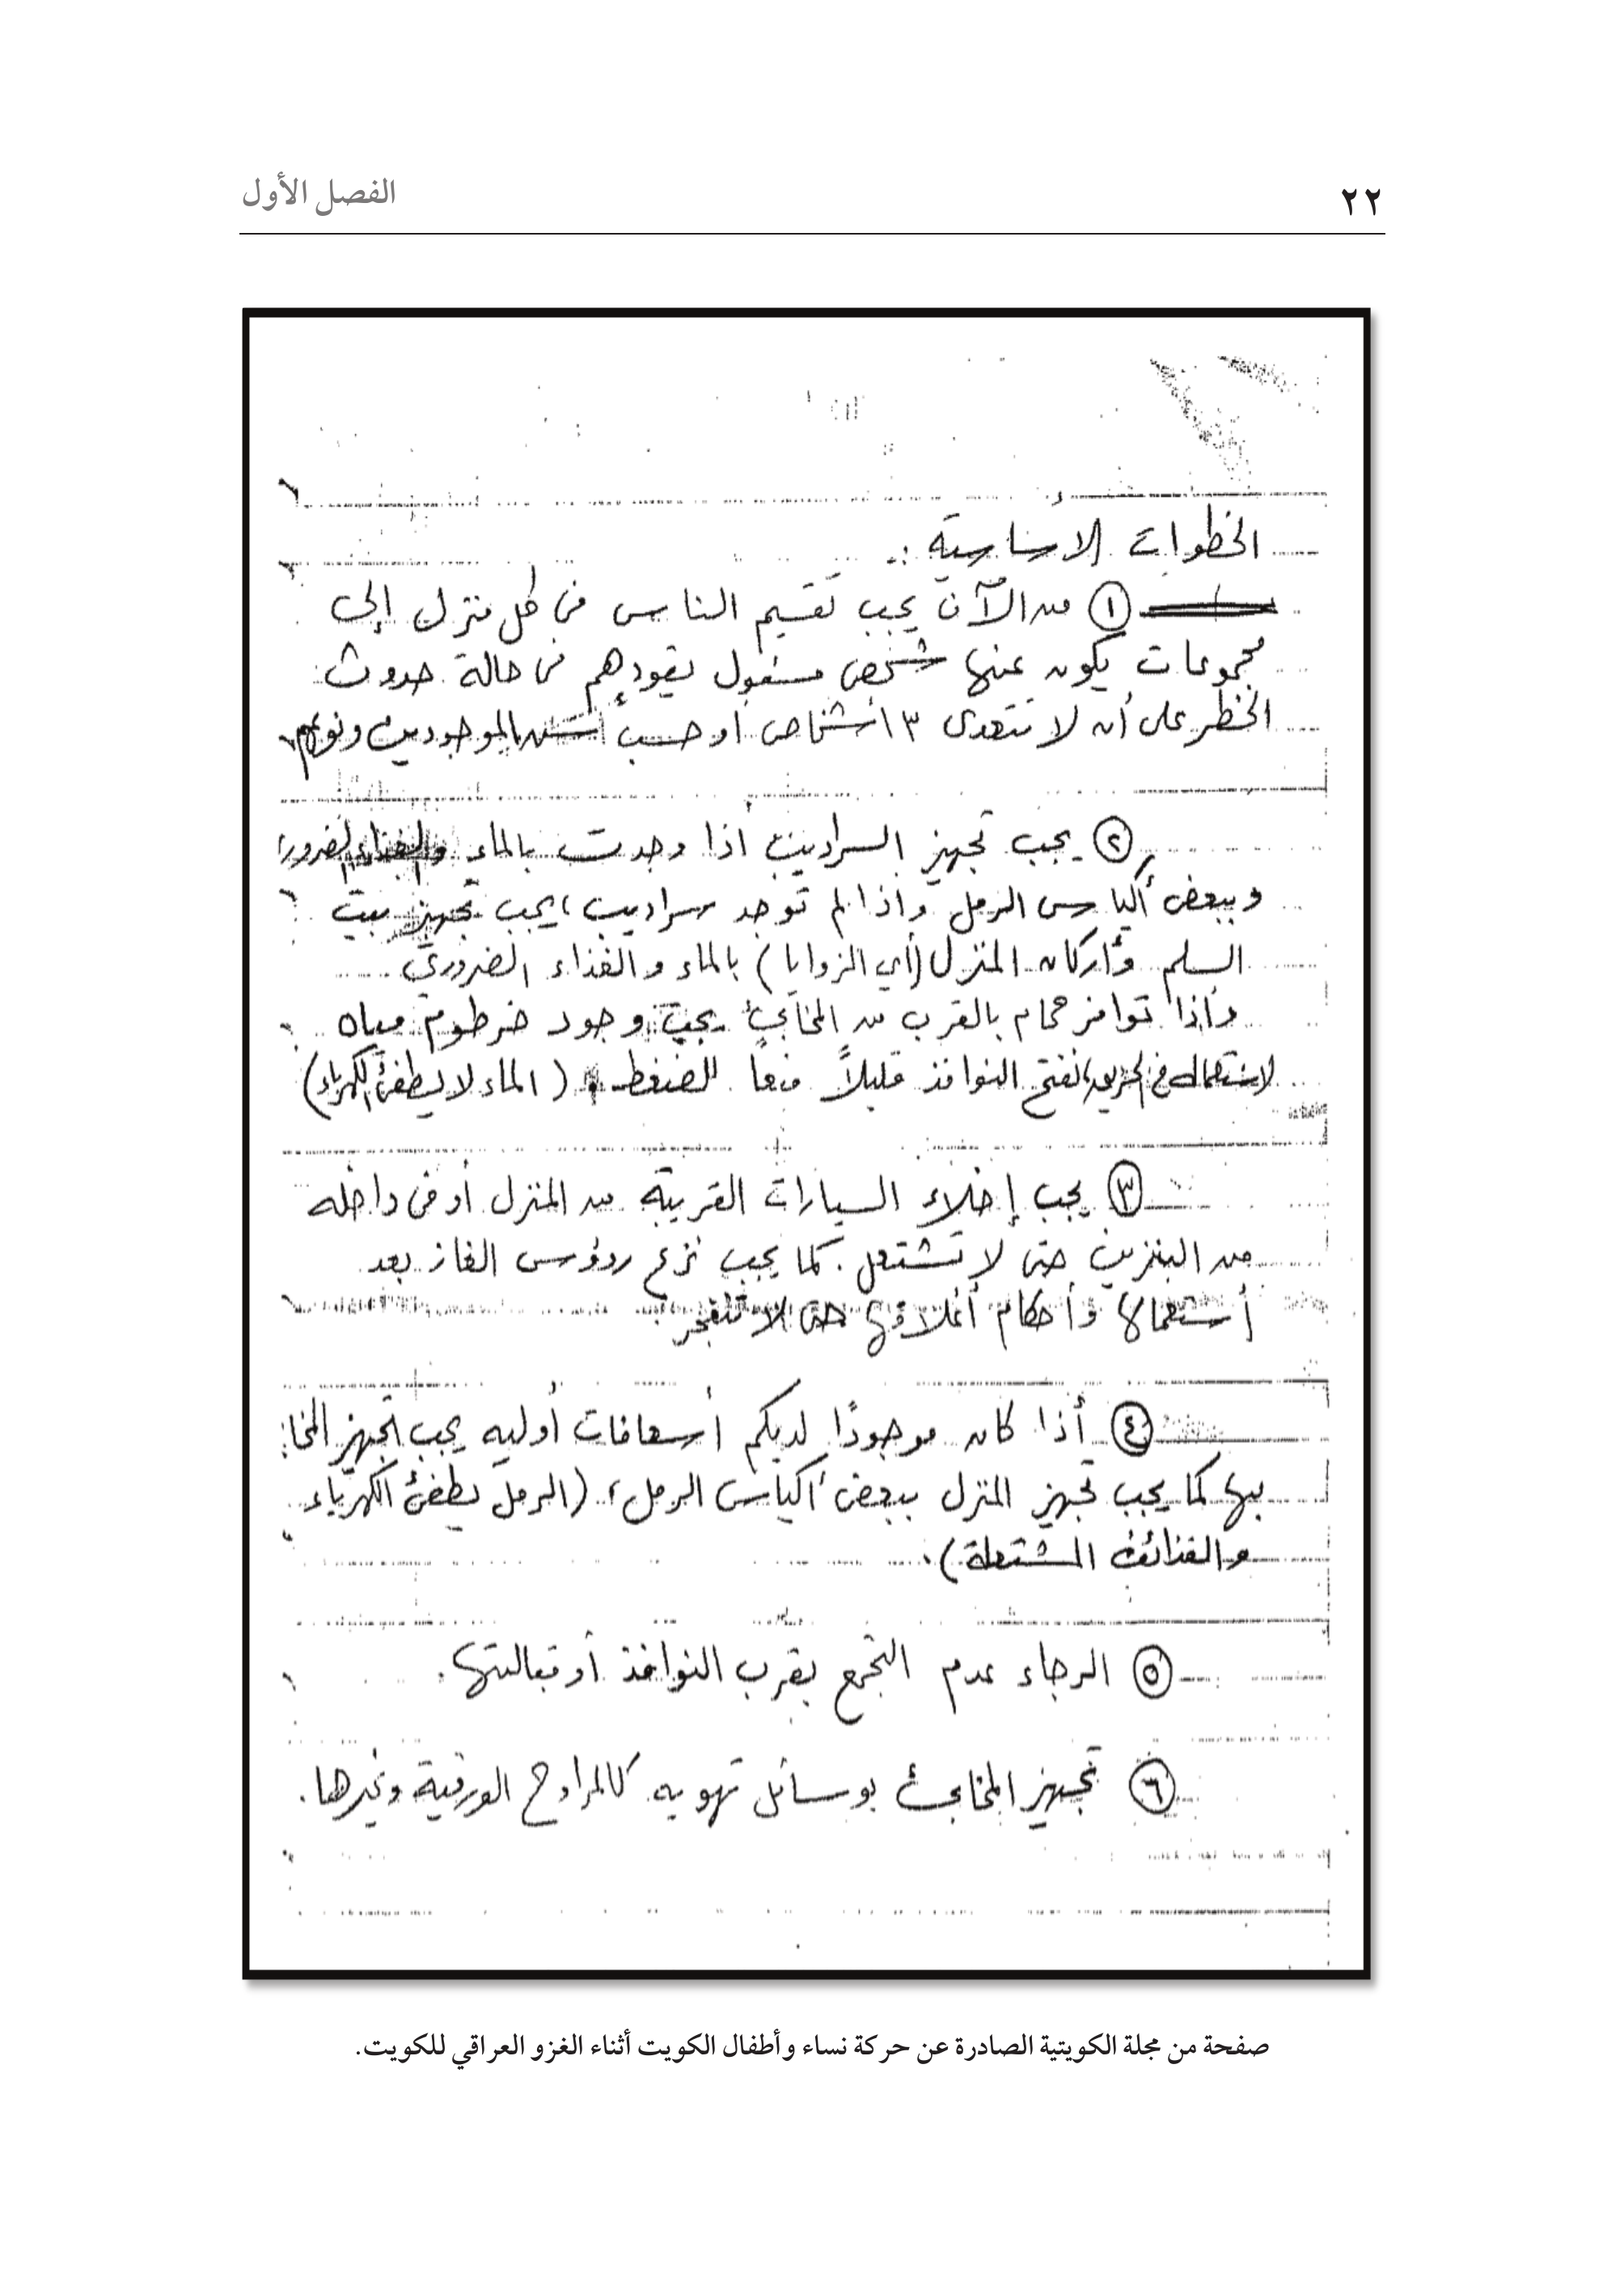 ٢٢
الفصل الأول
الخطوات الاساسية :
١ من الآن يجب تقسيم الناس في كل منزل إلى
مجموعات يكون عنها شخص مسئول يقودهم في حالة حدوث
الخطر على أن لا تتعدى ٣ أشخاص أو حسب الموجودين ونوعهم
٢ يجب تجهيز السراديب اذا وجدت بالماء والغذاء الضروري
وببعض أكياس الرمل واذا لم توجد سراديب، يجب تجهيز بيت
السلم وأركان المنزل (أي الزوايا) بالماء والغذاء الضروري
وأذا توافر حمام بالقرب من المخابئ يجب وجود خرطوم مياه
لاستعماله في الحريق، تفتح النوافذ قليلاً منعاً للضغط (الماء لا يطفئ الكهرباء)
٣ يجب إخلاء السيارات القريبة من المنزل أو في داخله
من البنزين حتى لا تشتعل. كما يجب نزع رؤوس الغاز بعد
أستعمالها وأحكام أغلاقها حتى لا تنفجر
٤ أذا كان موجودًا لديكم أسعافات أوليه يجب تجهيز المخا
بها كما يجب تجهيز المنزل ببعض أكياس الرمل، (الرمل يطفئ الكهرباء
والقذائف المشتعلة).
٥ الرجاء عدم التجمع بقرب النوافذ أو قبالتها.
٦ تجهيز المخابئ بوسائل تهويه كالمراوح الورقية وغيرها.
صفحة من مجلة الكويتية الصادرة عن حركة نساء وأطفال الكويت أثناء الغزو العراقي للكويت.